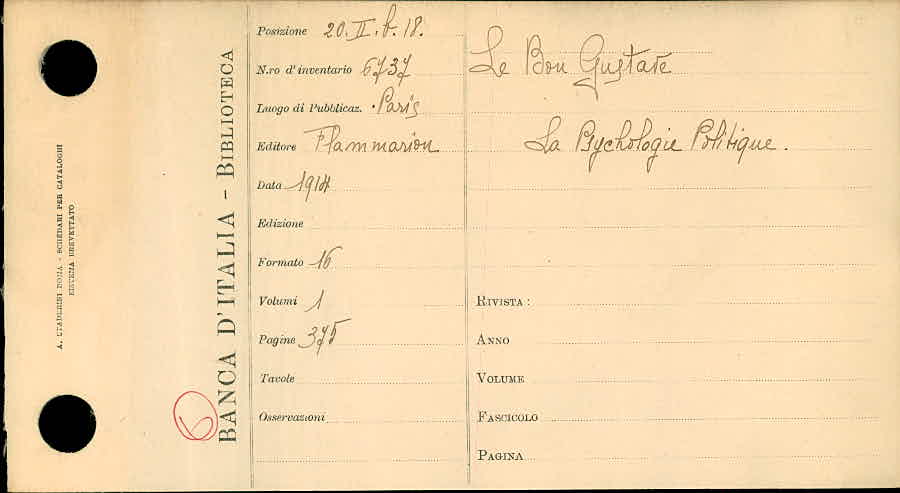 A. STADERINI ROMA - SCHEDARI PER CATALOGHI
SISTEMA BREVETTATO
BANCA D'ITALIA - BIBLIOTECA
6
Posizione 20. II. b. 18.
N.ro d'inventario 6737
Luogo di Pubblicaz. Paris
Editore Flammarion
Data 1914
Edizione
Formato 16
Volumi 1
Pagine 375
Tavole
Osservazioni
Le Bon Gustave
La Psychologie Politique.
RIVISTA:
ANNO
VOLUME
FASCICOLO
PAGINA